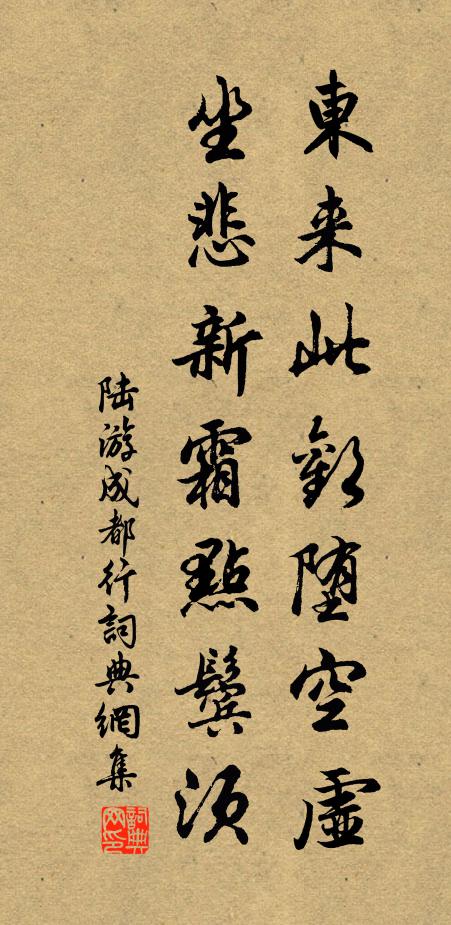 東来此歡堕空虛
坐悲新霜點鬢須
陆游成都行詞典網集
詞典网印